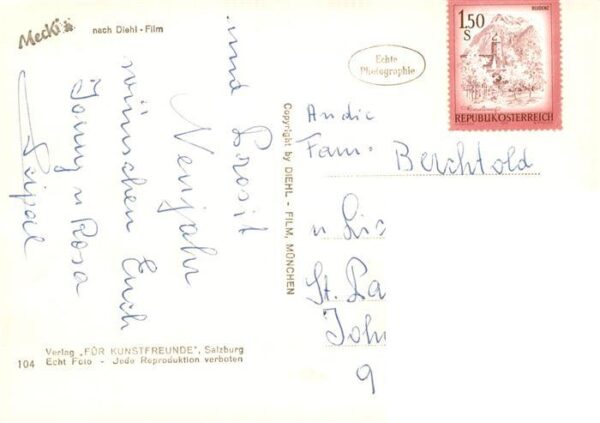 Mecki
nach Diehl - Film
und Prosit
Neujahr
wünschen Euch
Jonny u Rosa
Echte
Photographie
Copyright by DIEHL - FILM, MÜNCHEN
1.50
S
BLUDENZ
REPUBLIK ÖSTERREICH
An die
Fam. Berchtold
u
St.
104
Verlag „FÜR KUNSTFREUNDE", Salzburg
Echt Foto - Jede Reproduktion verboten